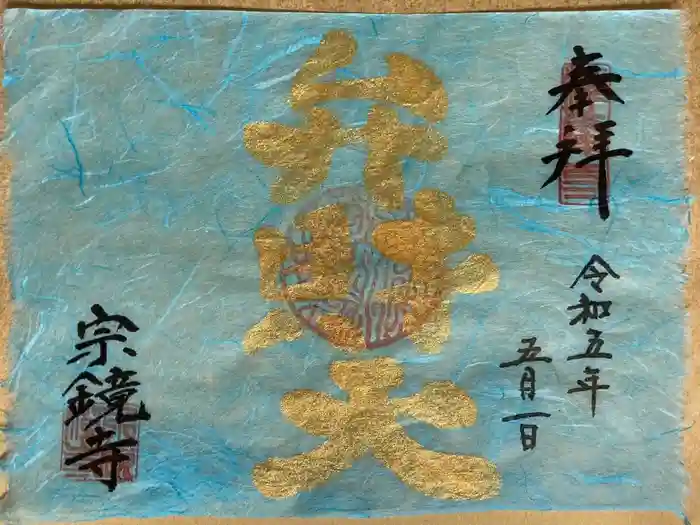 奉拝
令和五年
五月一日
弁財天
宗鏡寺